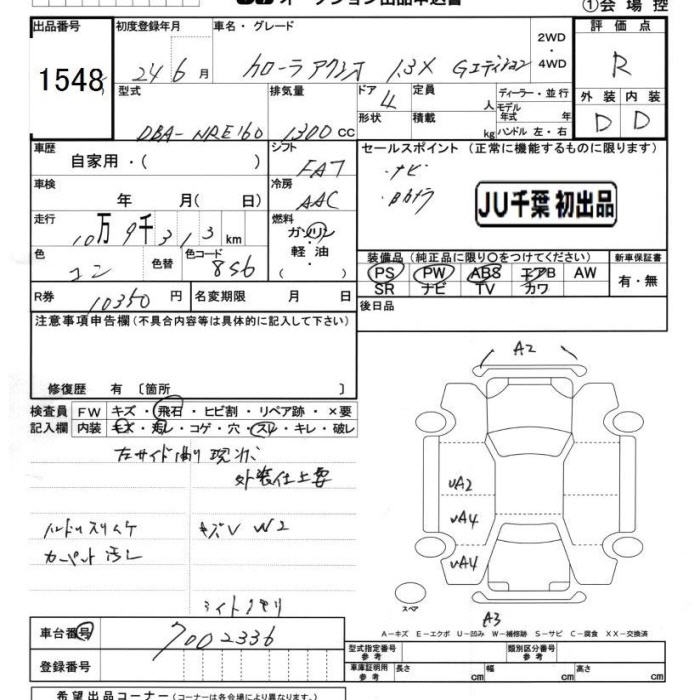 オークション出品申込書
①会場控
出品番号
1548
初度登録年月
24 6 月
車名・グレード
カローラアクシオ 1.3X Gエディション
2WD
・
4WD
評価点
R
外装 内装
D D
型式
DBA-NRE160
排気量
1300 cc
ドア
4
定員
人
形状
積載
kg
ディーラー・並行
モデル年式 年
ハンドル 左・右
車歴
自家用・( )
シフト
FAT
セールスポイント (正常に機能するものに限ります)
・ナビ
・Bカメラ
JU千葉 初出品
車検
年 月( 日)
冷房
AAC
走行
10万9千313 km
燃料
ガソリン
・
軽油
色
コン
色替
色コード
8S6
装備品 (純正品に限り○をつけてください)
PS PW ABS エアB AW
SR ナビ TV カワ
新車保証書
有・無
R券
10350 円
名変期限 月 日
後日品
注意事項申告欄 (不具合内容等は具体的に記入して下さい)
修復歴 有 〔箇所 〕
検査員
記入欄
FW キズ・飛石・ヒビ割・リペア跡・×要
内装 キズ・汚レ・コゲ・穴・スレ・キレ・破レ
左サイド廻り現状
外装仕上要
ハンドルスリムケ キズV W2
カーペット汚レ
ライトクモリ
A2
UA2
UA4
UA4
A3
スペア
A-キズ E-エクボ U-凹み W-補修跡 S-サビ C-腐食 XX-交換済
車台番号
7002336
登録番号
型式指定番号
参考
類別区分番号
参考
車庫証明用
参考
長さ cm 幅 cm 高さ cm
希望出品コーナー (コーナーは各会場により異なります)